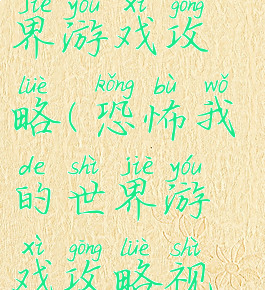 jiè yóu xì gōng
界游戏攻
lüè kǒng bù wǒ
略(恐怖我
de shì jiè yóu
的世界游
xì gōng lüè shì
戏攻略视